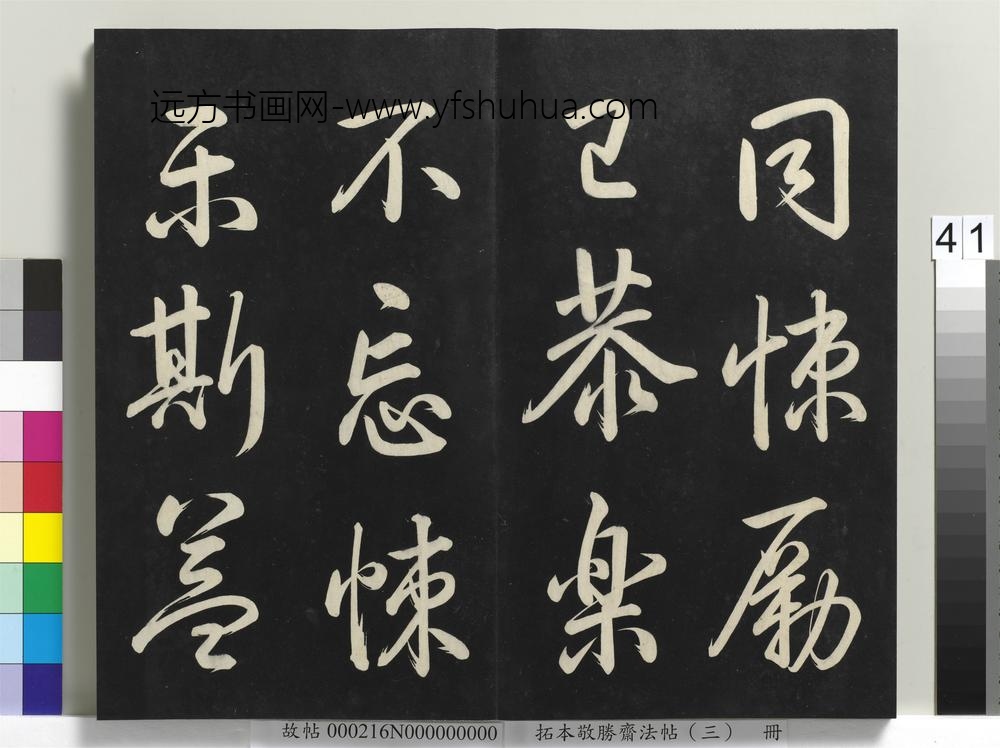 远方书画网-www.yfshuhua.com
同悚勵
己恭楽
不忘悚
乐斯益
41
故帖 000216N000000000 拓本敬勝齋法帖(三) 冊